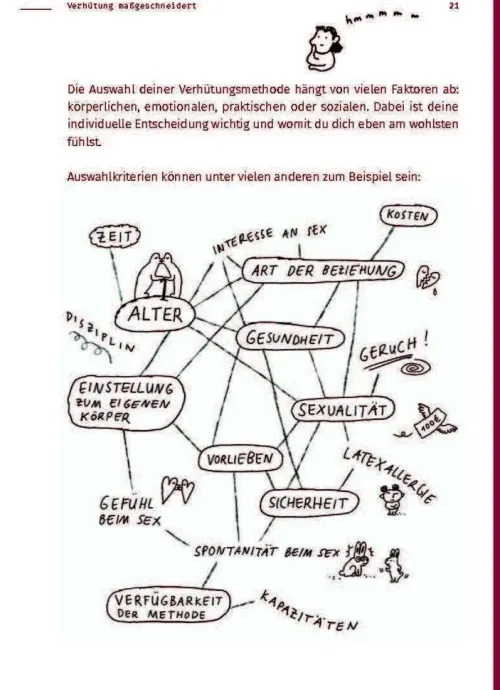 Verhütung maßgeschneidert
21
hmmmmm
Die Auswahl deiner Verhütungsmethode hängt von vielen Faktoren ab:
körperlichen, emotionalen, praktischen oder sozialen. Dabei ist deine
individuelle Entscheidung wichtig und womit du dich eben am wohlsten
fühlst.
Auswahlkriterien können unter vielen anderen zum Beispiel sein:
KOSTEN
ZEIT
INTERESSE AN SEX
ART DER BEZIEHUNG
ALTER
DISZIPLIN
GESUNDHEIT
GERUCH!
EINSTELLUNG
ZUM EIGENEN
KÖRPER
SEXUALITÄT
100€
VORLIEBEN
LATEXALLERGIE
GEFÜHL
BEIM SEX
SICHERHEIT
SPONTANITÄT BEIM SEX
VERFÜGBARKEIT
DER METHODE
KAPAZITÄTEN